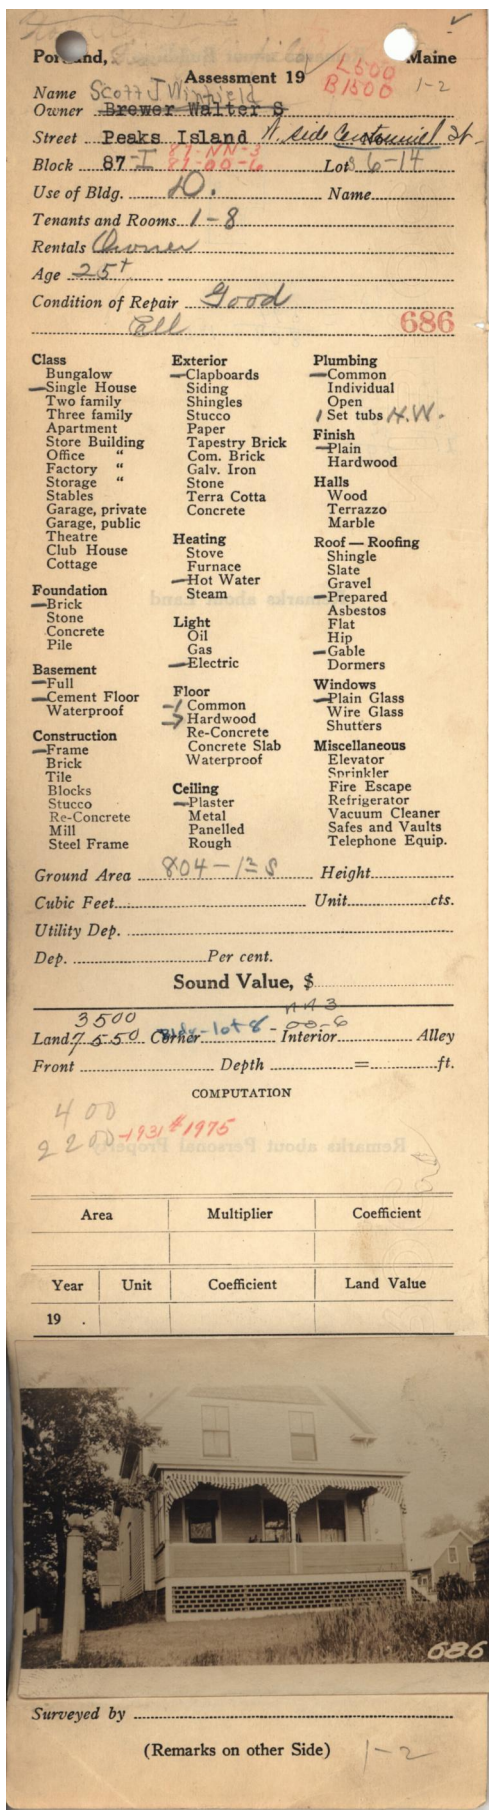 Portland, Maine
Assessment 19
L500
B1500
1-2
Name Scott J Winfield
Owner Brewer Walter S
Street Peaks Island N. side Centennial St.
87-NN-3
Block 87-I 87-OO-6 Lots 6-14
Use of Bldg. D. Name
Tenants and Rooms 1-8
Rentals Owner
Age 25+
Condition of Repair Good
All
686
Class
Bungalow
Single House
Two family
Three family
Apartment
Store Building
Office "
Factory "
Storage "
Stables
Garage, private
Garage, public
Theatre
Club House
Cottage
Foundation
Brick
Stone
Concrete
Pile
Basement
Full
Cement Floor
Waterproof
Construction
Frame
Brick
Tile
Blocks
Stucco
Re-Concrete
Mill
Steel Frame
Exterior
Clapboards
Siding
Shingles
Stucco
Paper
Tapestry Brick
Com. Brick
Galv. Iron
Stone
Terra Cotta
Concrete
Heating
Stove
Furnace
Hot Water
Steam
Light
Oil
Gas
Electric
Floor
1 Common
Hardwood
Re-Concrete
Concrete Slab
Waterproof
Ceiling
Plaster
Metal
Panelled
Rough
Plumbing
Common
Individual
Open
1 Set tubs H.W.
Finish
Plain
Hardwood
Halls
Wood
Terrazzo
Marble
Roof — Roofing
Shingle
Slate
Gravel
Prepared
Asbestos
Flat
Hip
Gable
Dormers
Windows
Plain Glass
Wire Glass
Shutters
Miscellaneous
Elevator
Sprinkler
Fire Escape
Refrigerator
Vacuum Cleaner
Safes and Vaults
Telephone Equip.
Ground Area 804-1½ S Height
Cubic Feet Unit cts.
Utility Dep.
Dep. Per cent.
Sound Value, $
3500 NN3
Bldg-lot 8 - OO-6
Land 7550 Corner Interior Alley
Front Depth = ft.
COMPUTATION
400
2200 -1931 #1975
Area Multiplier Coefficient
Year Unit Coefficient Land Value
19 .
686
Surveyed by
(Remarks on other Side) 1-2